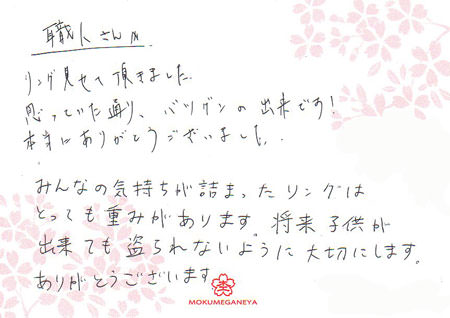 職人さんへ
リング見せて頂きました。
思っていた通り、バツグンの出来です!
本当にありがとうございました。
みんなの気持ちが詰まったリングは
とっても重みがあります。将来子供が
出来ても盗られないように大切にします。
ありがとうございます
MOKUMEGANEYA